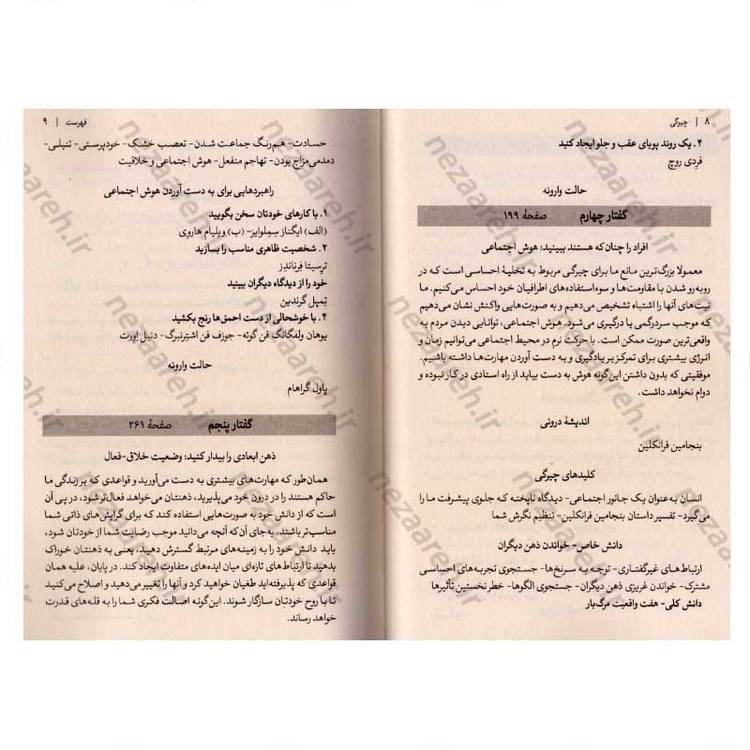 ۸ | چیرگی
۴. یک روند پویای عقب و جلو ایجاد کنید
فردی روچ
حالت وارونه
گفتار چهارم صفحهٔ ۱۹۹
افراد را چنان که هستند ببینید: هوش اجتماعی
معمولاً بزرگ‌ترین مانع ما برای چیرگی مربوط به تخلیهٔ احساسی است که در
روبه‌رو شدن با مقاومت‌ها و سوءاستفاده‌های اطرافیان خود احساس می‌کنیم. ما
نیت‌های آنها را اشتباه تشخیص می‌دهیم و به صورت‌هایی واکنش نشان می‌دهیم
که موجب سردرگمی یا درگیری می‌شود. هوش اجتماعی، توانایی دیدن مردم به
واقعی‌ترین صورت ممکن است. با حرکت نرم در محیط اجتماعی می‌توانیم زمان و
انرژی بیشتری برای تمرکز بر یادگیری و به دست آوردن مهارت‌ها داشته باشیم.
موفقیتی که بدون داشتن این‌گونه هوش به دست بیاید از راه استادی در کار نبوده و
دوام نخواهد داشت.
اندیشهٔ درونی
بنجامین فرانکلین
کلیدهای چیرگی
انسان به‌عنوان یک جانور اجتماعی- دیدگاه ناپخته که جلوی پیشرفت ما را
می‌گیرد- تفسیر داستان بنجامین فرانکلین- تنظیم نگرش شما
دانش خاص- خواندن ذهن دیگران
ارتباط‌های غیرگفتاری- توجه به سرنخ‌ها- جستجوی تجربه‌های احساسی
مشترک- خواندن غریزی ذهن دیگران- جستجوی الگوها- خطر نخستین تأثیرها
دانش کلی- هفت واقعیت مرگ‌بار
فهرست | ۹
حسادت- هم‌رنگ جماعت شدن- تعصب خشک- خودپرستی- تنبلی-
دمدمی‌مزاج بودن- تهاجم منفعل- هوش اجتماعی و خلاقیت
راهبردهایی برای به دست آوردن هوش اجتماعی
۱. با کارهای خودتان سخن بگویید
(الف) ایگناز سِملوایز- (ب) ویلیام هاروی
۲. شخصیت ظاهری مناسب را بسازید
ترسیتا فِرناندِز
خود را از دیدگاه دیگران ببینید
تِمپل گرندین
۴. با خوشحالی از دست احمق‌ها رنج بکشید
یوهان ولفگانگ فن گوته- جوزف فن اشترنبرگ- دنیل اِورت
حالت وارونه
پاول گراهام
گفتار پنجم صفحهٔ ۲۶۱
ذهن ابعادی را بیدار کنید: وضعیت خلاق-فعال
همان‌طور که مهارت‌های بیشتری به دست می‌آورید و قواعدی که بر زندگی ما
حاکم هستند را در درون خود می‌پذیرید، ذهنتان می‌خواهد فعال‌تر شود، در پی آن
است که از دانش خود به صورت‌هایی استفاده کند که برای گرایش‌های ذاتی شما
مناسب‌تر باشند. به‌جای آن که آنچه می‌دانید موجب رضایت شما از خودتان شود،
باید دانش خود را به زمینه‌های مرتبط گسترش دهید، یعنی به ذهنتان خوراک
بدهید تا ارتباط‌های تازه‌ای میان ایده‌های متفاوت ایجاد کند. در پایان، علیه همان
قواعدی که پذیرفته‌اید طغیان خواهید کرد و آنها را تغییر می‌دهید و اصلاح می‌کنید
تا با روح خودتان سازگار شوند. این‌گونه اصالت فکری شما را به قله‌های قدرت
خواهد رساند.
nezaareh.ir